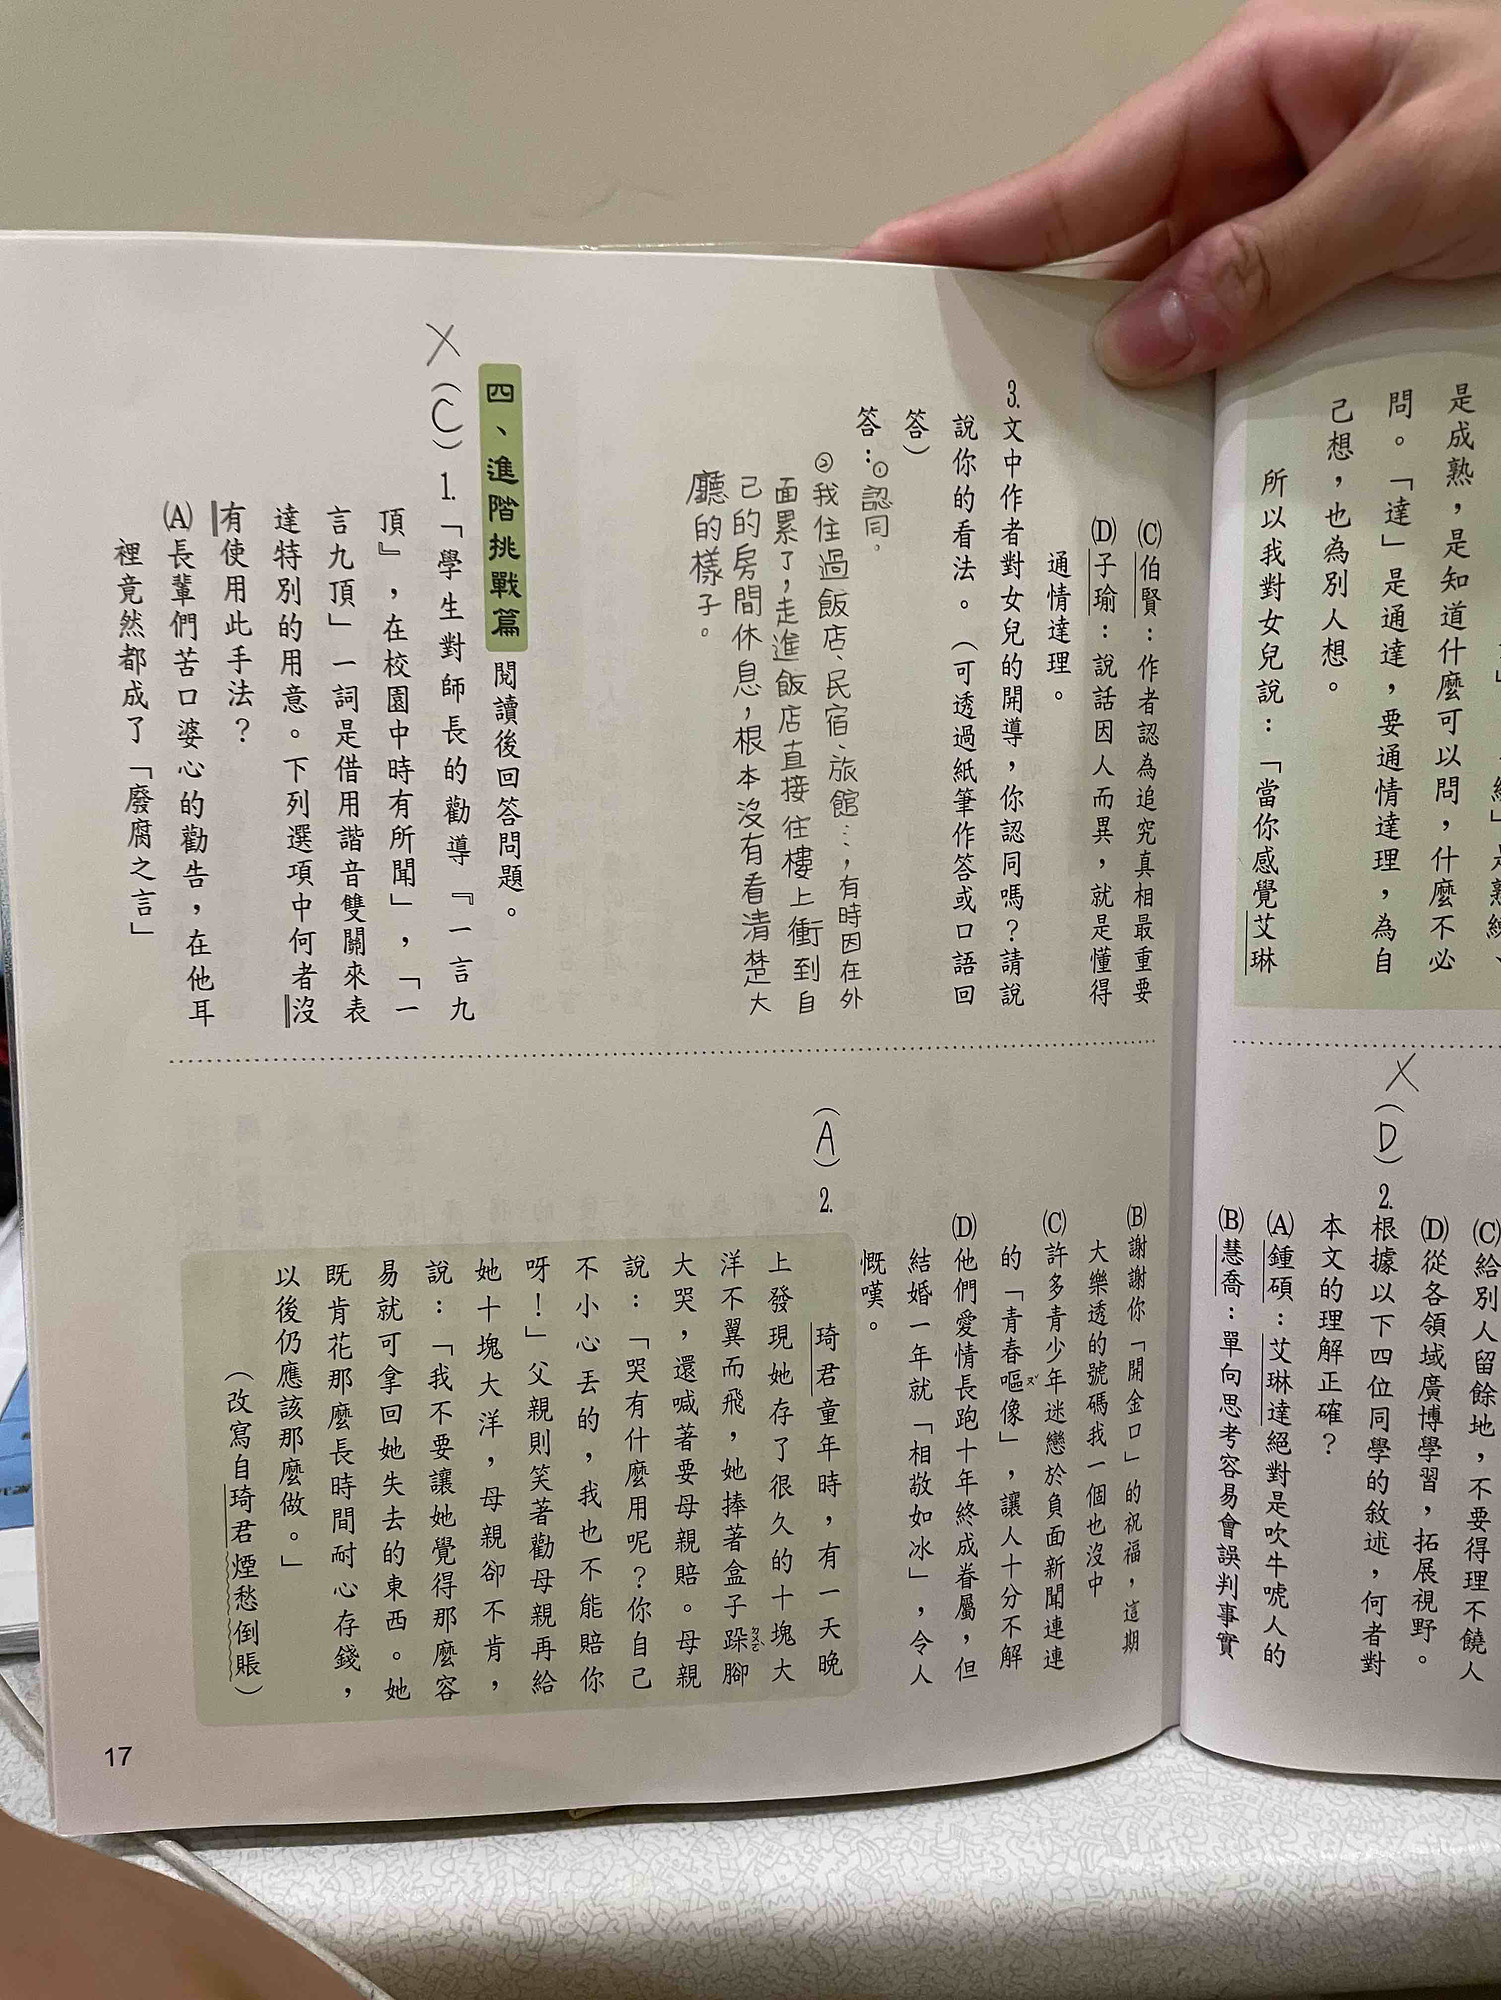 是成熟，是知道什麼可以問，什麼不必
問。「達」是通達，要通情達理，為自
己想，也為別人想。
所以我對女兒說：「當你感覺艾琳
(C)給別人留餘地，不要得理不饒人
(D)從各領域廣博學習，拓展視野。
X
(D)2.根據以下四位同學的敘述，何者對
本文的理解正確？
(A)鍾碩：艾琳達絕對是吹牛唬人的
(B)慧喬：單向思考容易會誤判事實
(C)伯賢：作者認為追究真相最重要
(D)子瑜：說話因人而異，就是懂得
通情達理。
3.文中作者對女兒的開導，你認同嗎？請說
說你的看法。（可透過紙筆作答或口語回
答）
答：①認同。
②我住過飯店、民宿、旅館…，有時因在外
面累了，走進飯店直接往樓上衝到自
己的房間休息，根本沒有看清楚大
廳的樣子。
四、進階挑戰篇 閱讀後回答問題。
X
(C)1.「學生對師長的勸導『一言九
頂』，在校園中時有所聞」，「一
言九頂」一詞是借用諧音雙關來表
達特別的用意。下列選項中何者沒
有使用此手法？
(A)長輩們苦口婆心的勸告，在他耳
裡竟然都成了「廢腐之言」
(B)謝謝你「開金口」的祝福，這期
大樂透的號碼我一個也沒中
(C)許多青少年迷戀於負面新聞連連
的「青春嘔ㄡˇ像」，讓人十分不解
(D)他們愛情長跑十年終成眷屬，但
結婚一年就「相敬如冰」，令人
慨嘆。
(A)2.
琦君童年時，有一天晚
上發現她存了很久的十塊大
洋不翼而飛，她捧著盒子跺ㄉㄨㄛˋ腳
大哭，還喊著要母親賠。母親
說：「哭有什麼用呢？你自己
不小心丟的，我也不能賠你
呀！」父親則笑著勸母親再給
她十塊大洋，母親卻不肯，
說：「我不要讓她覺得那麼容
易就可拿回她失去的東西。她
既肯花那麼長時間耐心存錢，
以後仍應該那麼做。」
（改寫自琦君煙愁倒賬）
17